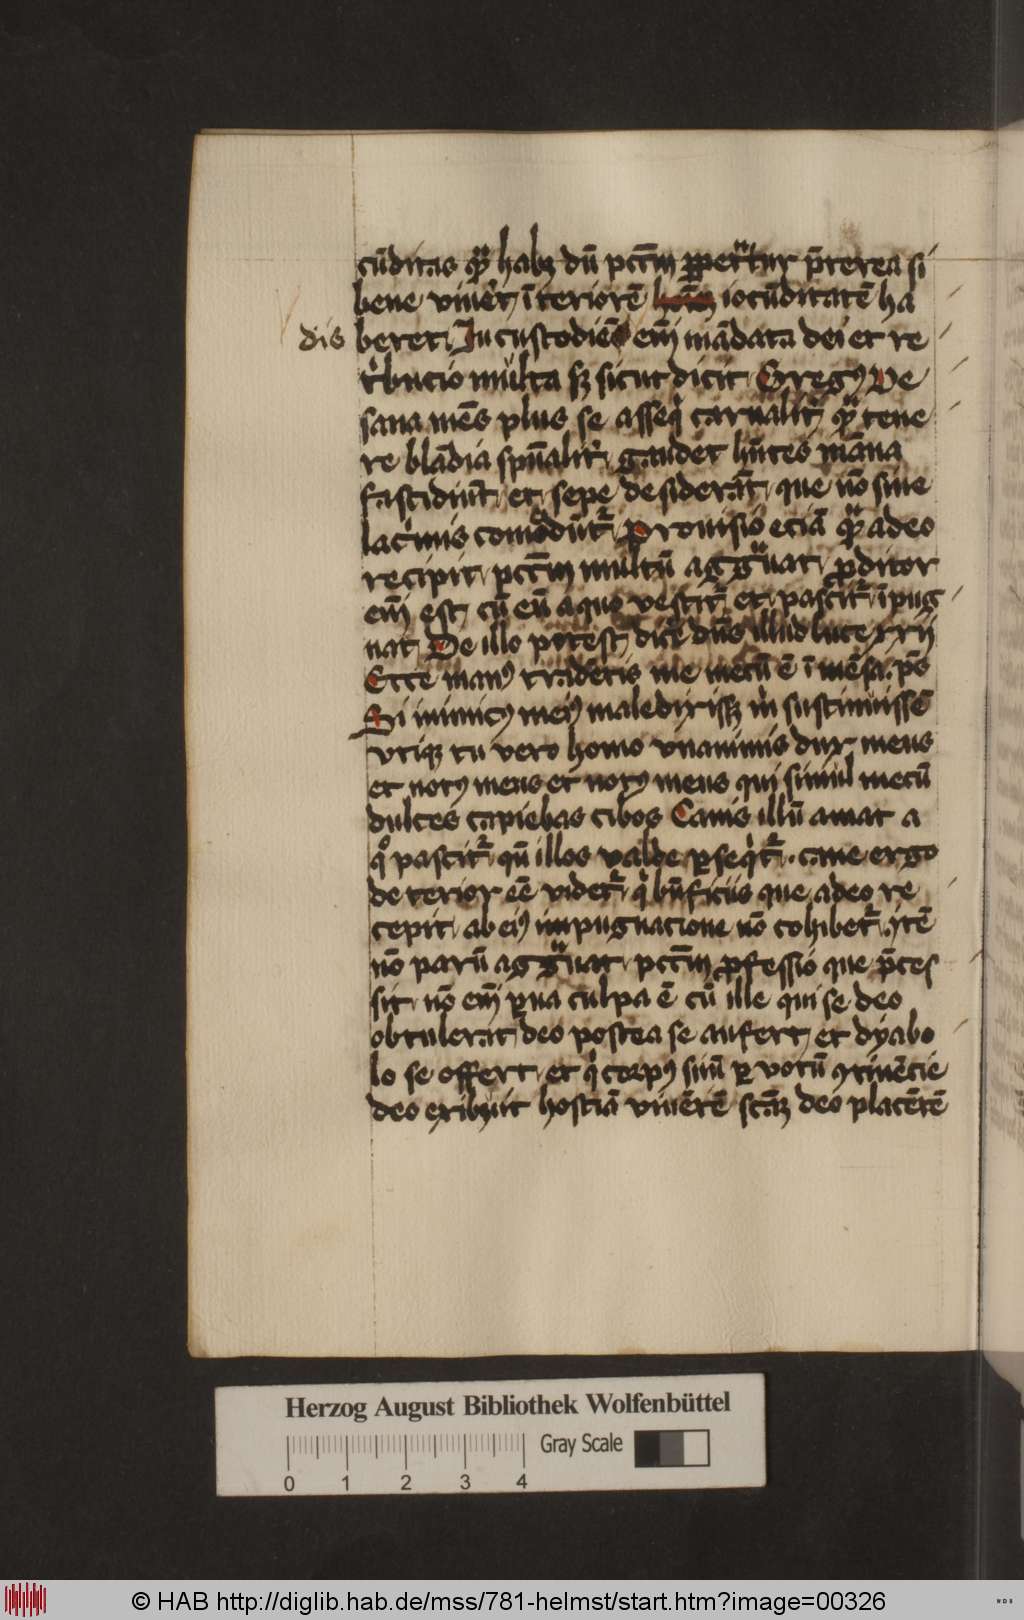 cūditas qͣm habꝫ dū pctm̄ ꝑpetᷓtur p̄terea si
bene viuēt īteriorē iocūditatē ha
beret In custodiēdis em̄ mādata dei et re
t'bucio multa sꝫ sicut dicit Gregꝰ De
sana mēs plus se asseq̇ carnalit᷑ qͣ tene
re blādia spūalit᷑ gaudet hūtes māna
fastidiūt et sepe desiderāt que nō sine
lac'mis comedūt᷑ Prouisio eciā qͣm adeo
recipit pctm̄ multū aggͣuat ꝓditor
em̄ est cū eū a quo vestit᷑ et pascit᷑ īpug
nat De illo potest dic̄e dn̄s illud luce xxij
Ecce manꝰ tradētis me mecū ē ī mēsa pˢ
Si inimicꝰ meꝰ maledixissꝫ m̓ sustinuissē
vtiqꝫ tu vero homo vnanimis dux meus
et notꝰ meus et notꝰ meus qui simul mecū
dulces capiebas cibos Canis illū amat a
qͦ pascit᷑ qn̄ illos valde ꝑseq̇t᷑ cane ergo
deterior eē videt᷑ q̇ bn̄ficiis que adeo re
cepit ab eiꝰ impugnacione nō cohibet᷑ Itē
nō parū aggͣuat pctm̄ ꝓfessio que p̄ces
sit nō em̄ ꝑua culpa ē cū ille qui se deo
obtulerat deo postea se aufert et dyabo
lo se offert et q̇ corpꝰ suū ꝑ votū ꝯtinēcie
deo exibuit hostiā viuētē scāꝫ deo placētē
Herzog August Bibliothek Wolfenbüttel
Gray Scale
0 1 2 3 4
© HAB http://diglib.hab.de/mss/781-helmst/start.htm?image=00326